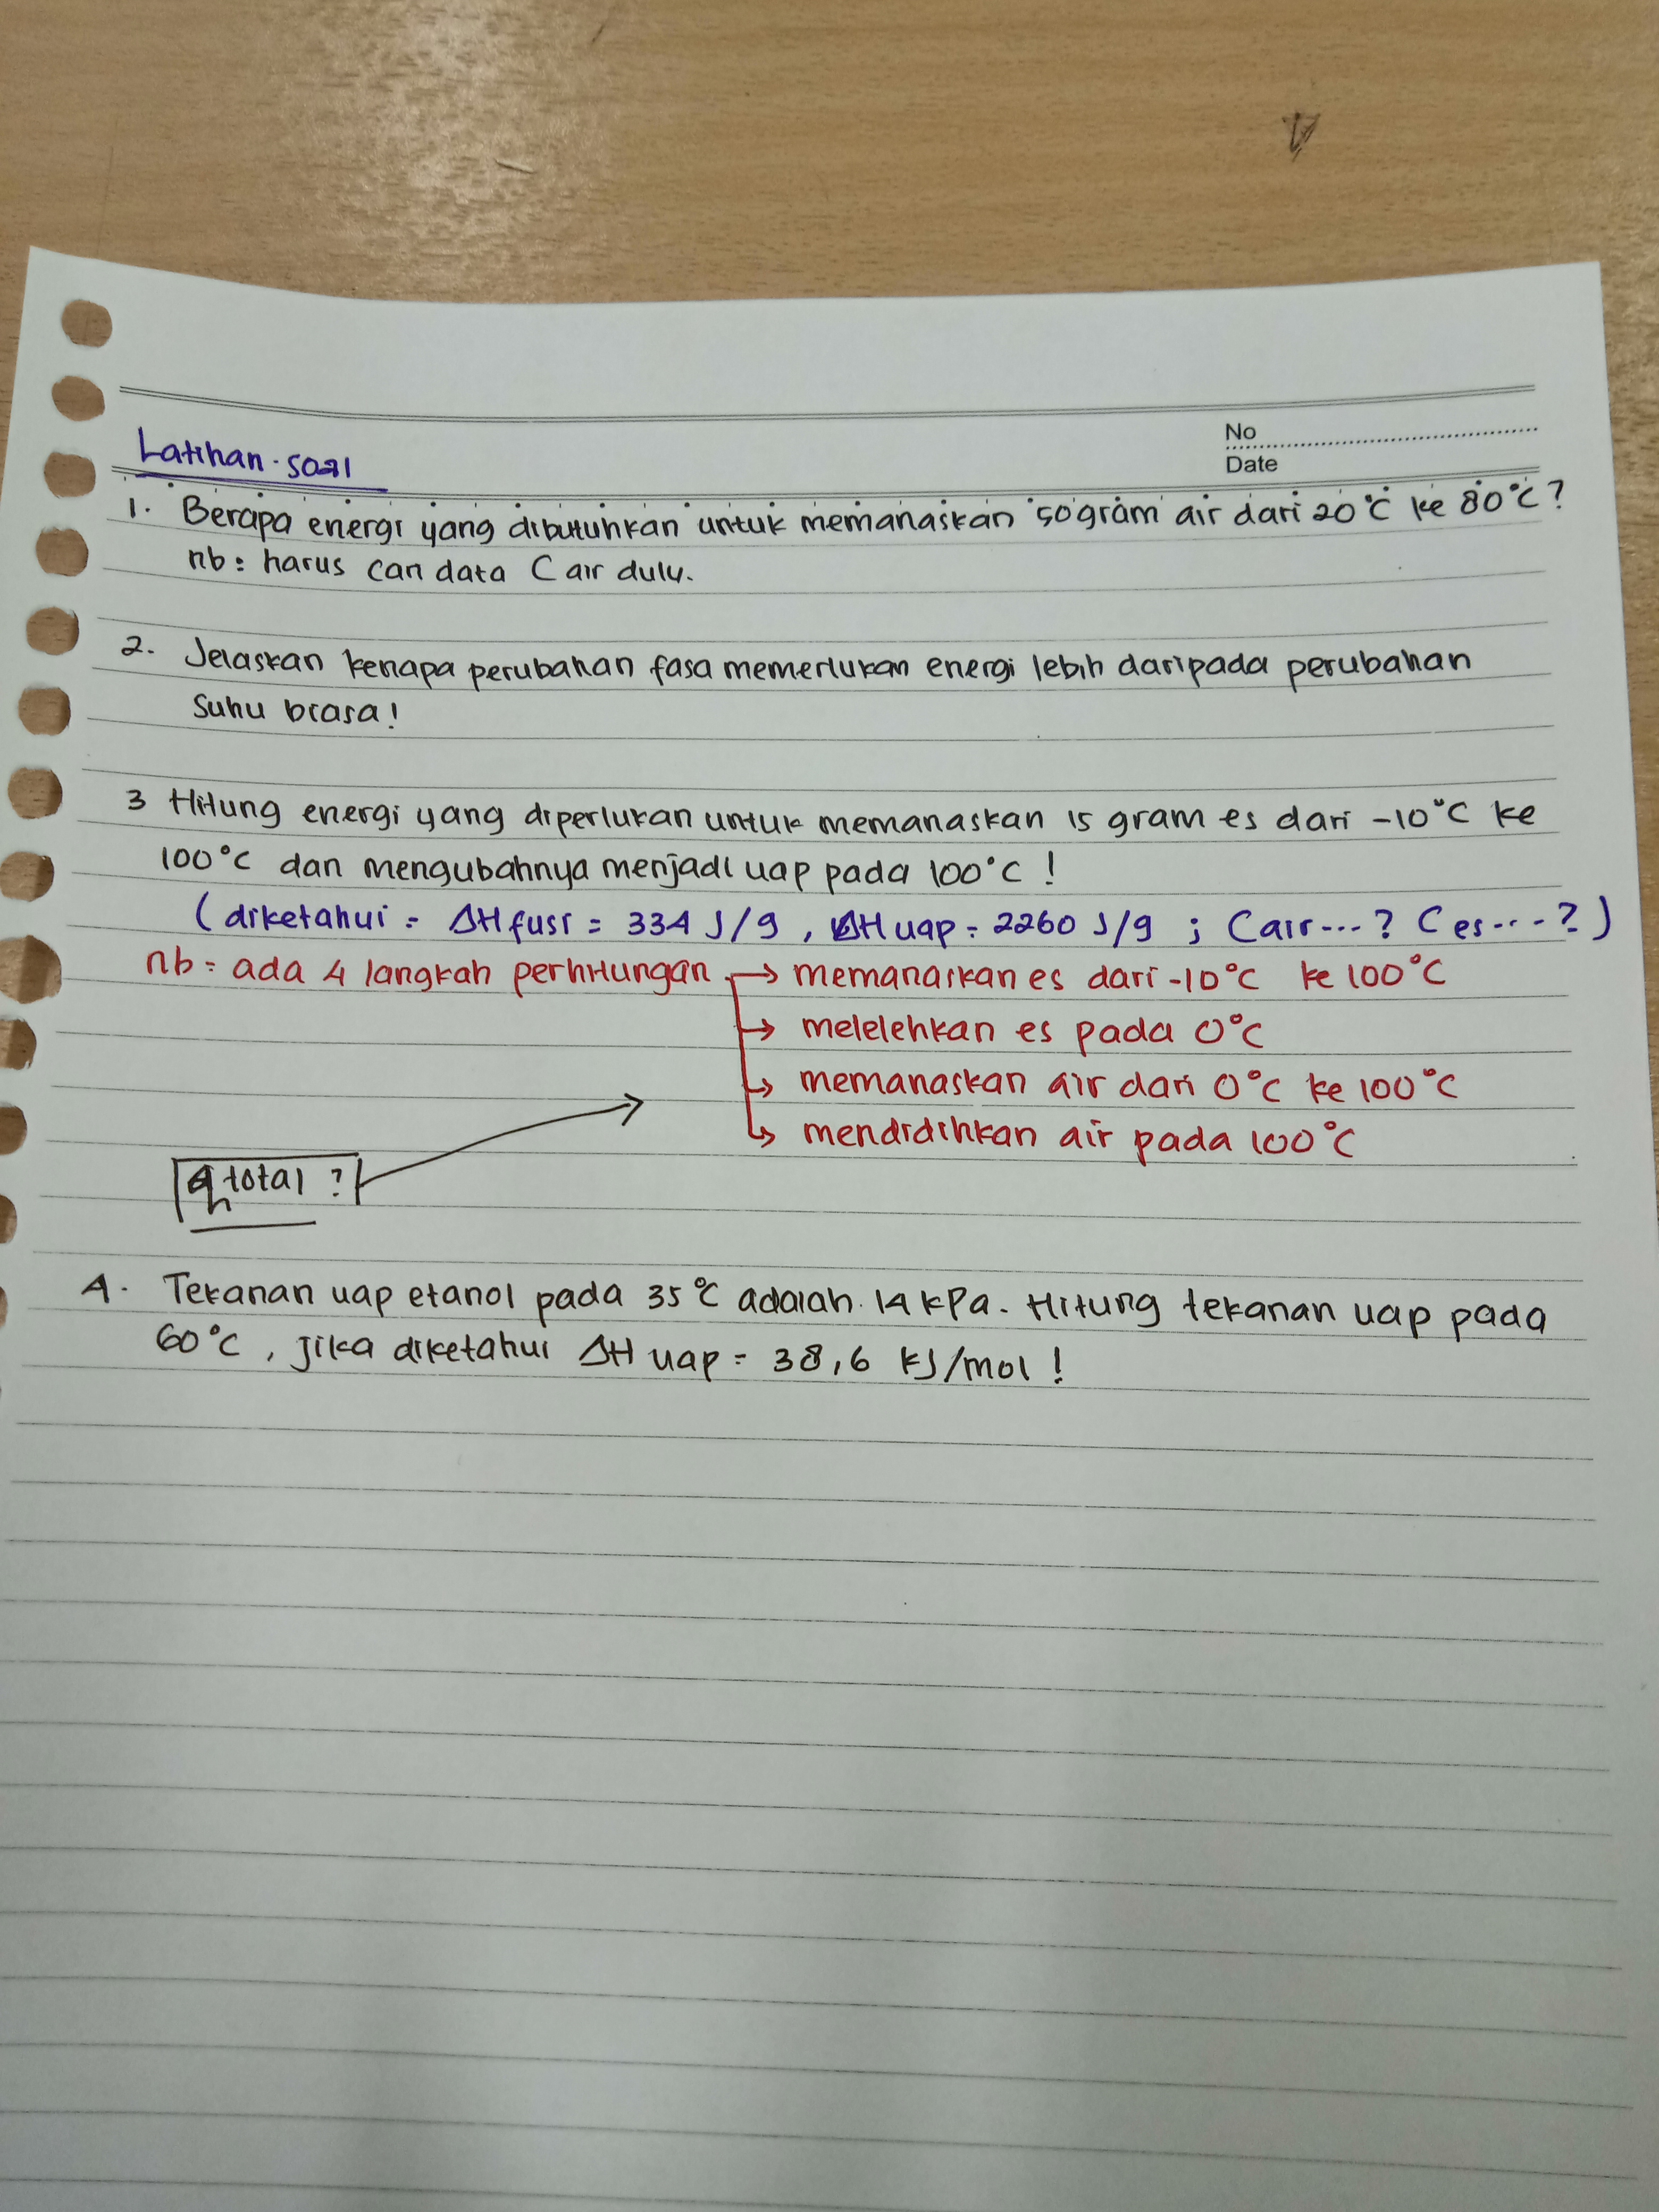 No
Date
Latihan soal
1. Berapa energi yang dibutuhkan untuk memanaskan 50 gram air dari 20°C ke 80°C?
nb: harus cari data C air dulu.
2. Jelaskan kenapa perubahan fasa memerlukan energi lebih daripada perubahan
suhu biasa!
3 Hitung energi yang diperlukan untuk memanaskan 15 gram es dari -10°C ke
100°C dan mengubahnya menjadi uap pada 100°C!
(diketahui = ΔH fusi = 334 J/g, ΔH uap = 2260 J/g ; C air...? C es...?)
nb = ada 4 langkah perhitungan → memanaskan es dari -10°C ke 100°C
→ melelehkan es pada 0°C
→ memanaskan air dari 0°C ke 100°C
→ mendidihkan air pada 100°C
q total ?
4. Tekanan uap etanol pada 35°C adalah 14 kPa. Hitung tekanan uap pada
60°C, jika diketahui ΔH uap = 38,6 kJ/mol!